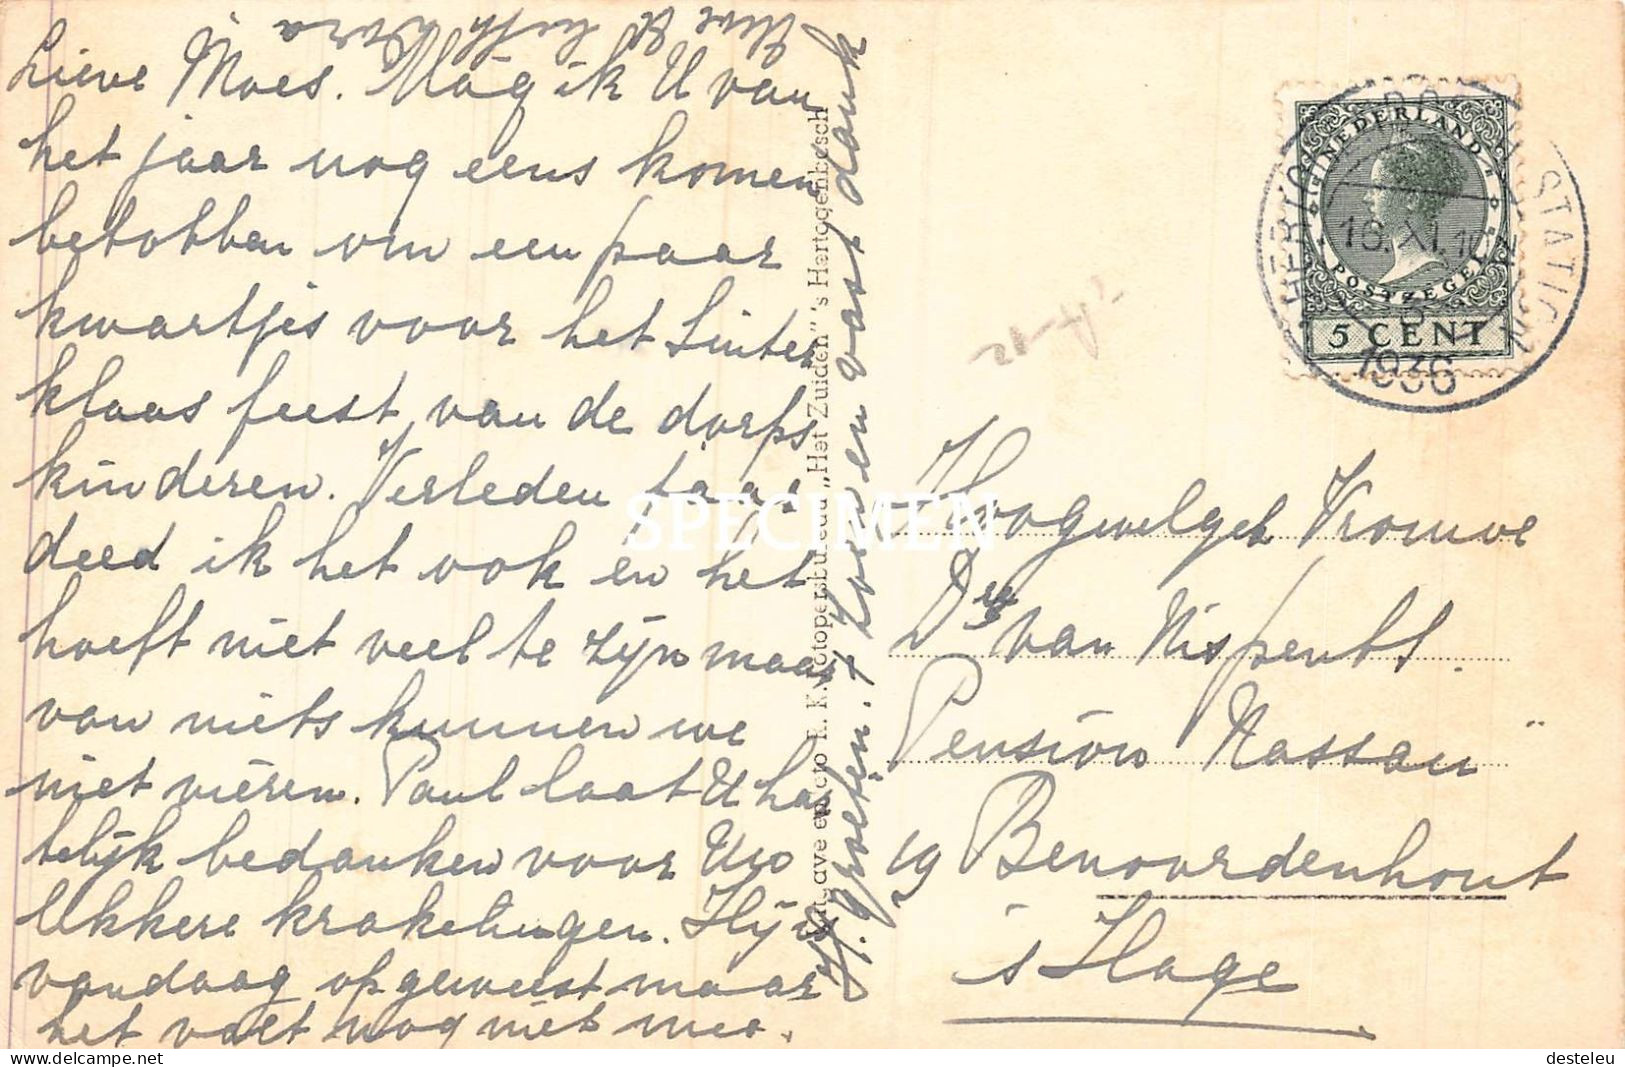 Lieve Moes. Mag ik U van
het jaar nog eens komen
betobben om een paar
kwartjes voor het Sinter
klaas feest van de dorps
kinderen. Verleden jaar
deed ik het ook en het
hoeft niet veel te zijn maar
van niets kunnen we
niet vieren. Paul laat U har
telijk bedanken voor Uw
lekkere krakelingen. Hij is
vandaag op geweest maar
het valt nog niet mee.
H. groeten. Zoen en vast dank
Uwe U liefh Dora
"Het Zuiden" 's Hertogenbosch
NEDERLAND
POSTZEGEL
5 CENT
STATIO
16.XI.
1936
Hoogwelgeb Vrouwe
van Nispen
Pension Nassau"
19 Benoordenhout
's Hage
SPECIMEN
desteleu